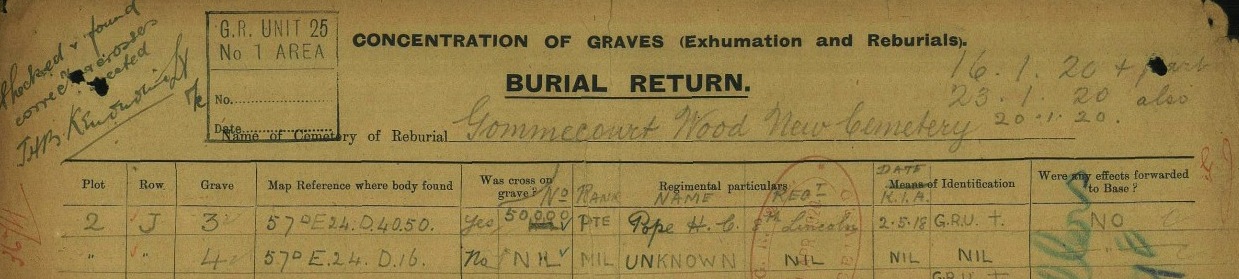 Checked & found
correct crosses
erected
G.R. UNIT 25
No 1 AREA
No.
Date
CONCENTRATION OF GRAVES (Exhumation and Reburials).
BURIAL RETURN.
16.1.20 + part
23.1.20 also
20.1.20.
Name of Cemetery of Reburial Gommecourt Wood New Cemetery
Plot Row. Grave Map Reference where body found Was cross on grave? No RANK Regimental particulars NAME REGT DATE K.I.A. Means of Identification Were any effects forwarded to Base?
2 J 3 57D E.24.D.40.50. Yes PTE Pope H. C. 5th Lincoln 2.5.18 G.R.U. + NO
" " 4 57D E.24.D.16. No NIL MIL UNKNOWN NIL NIL NIL "